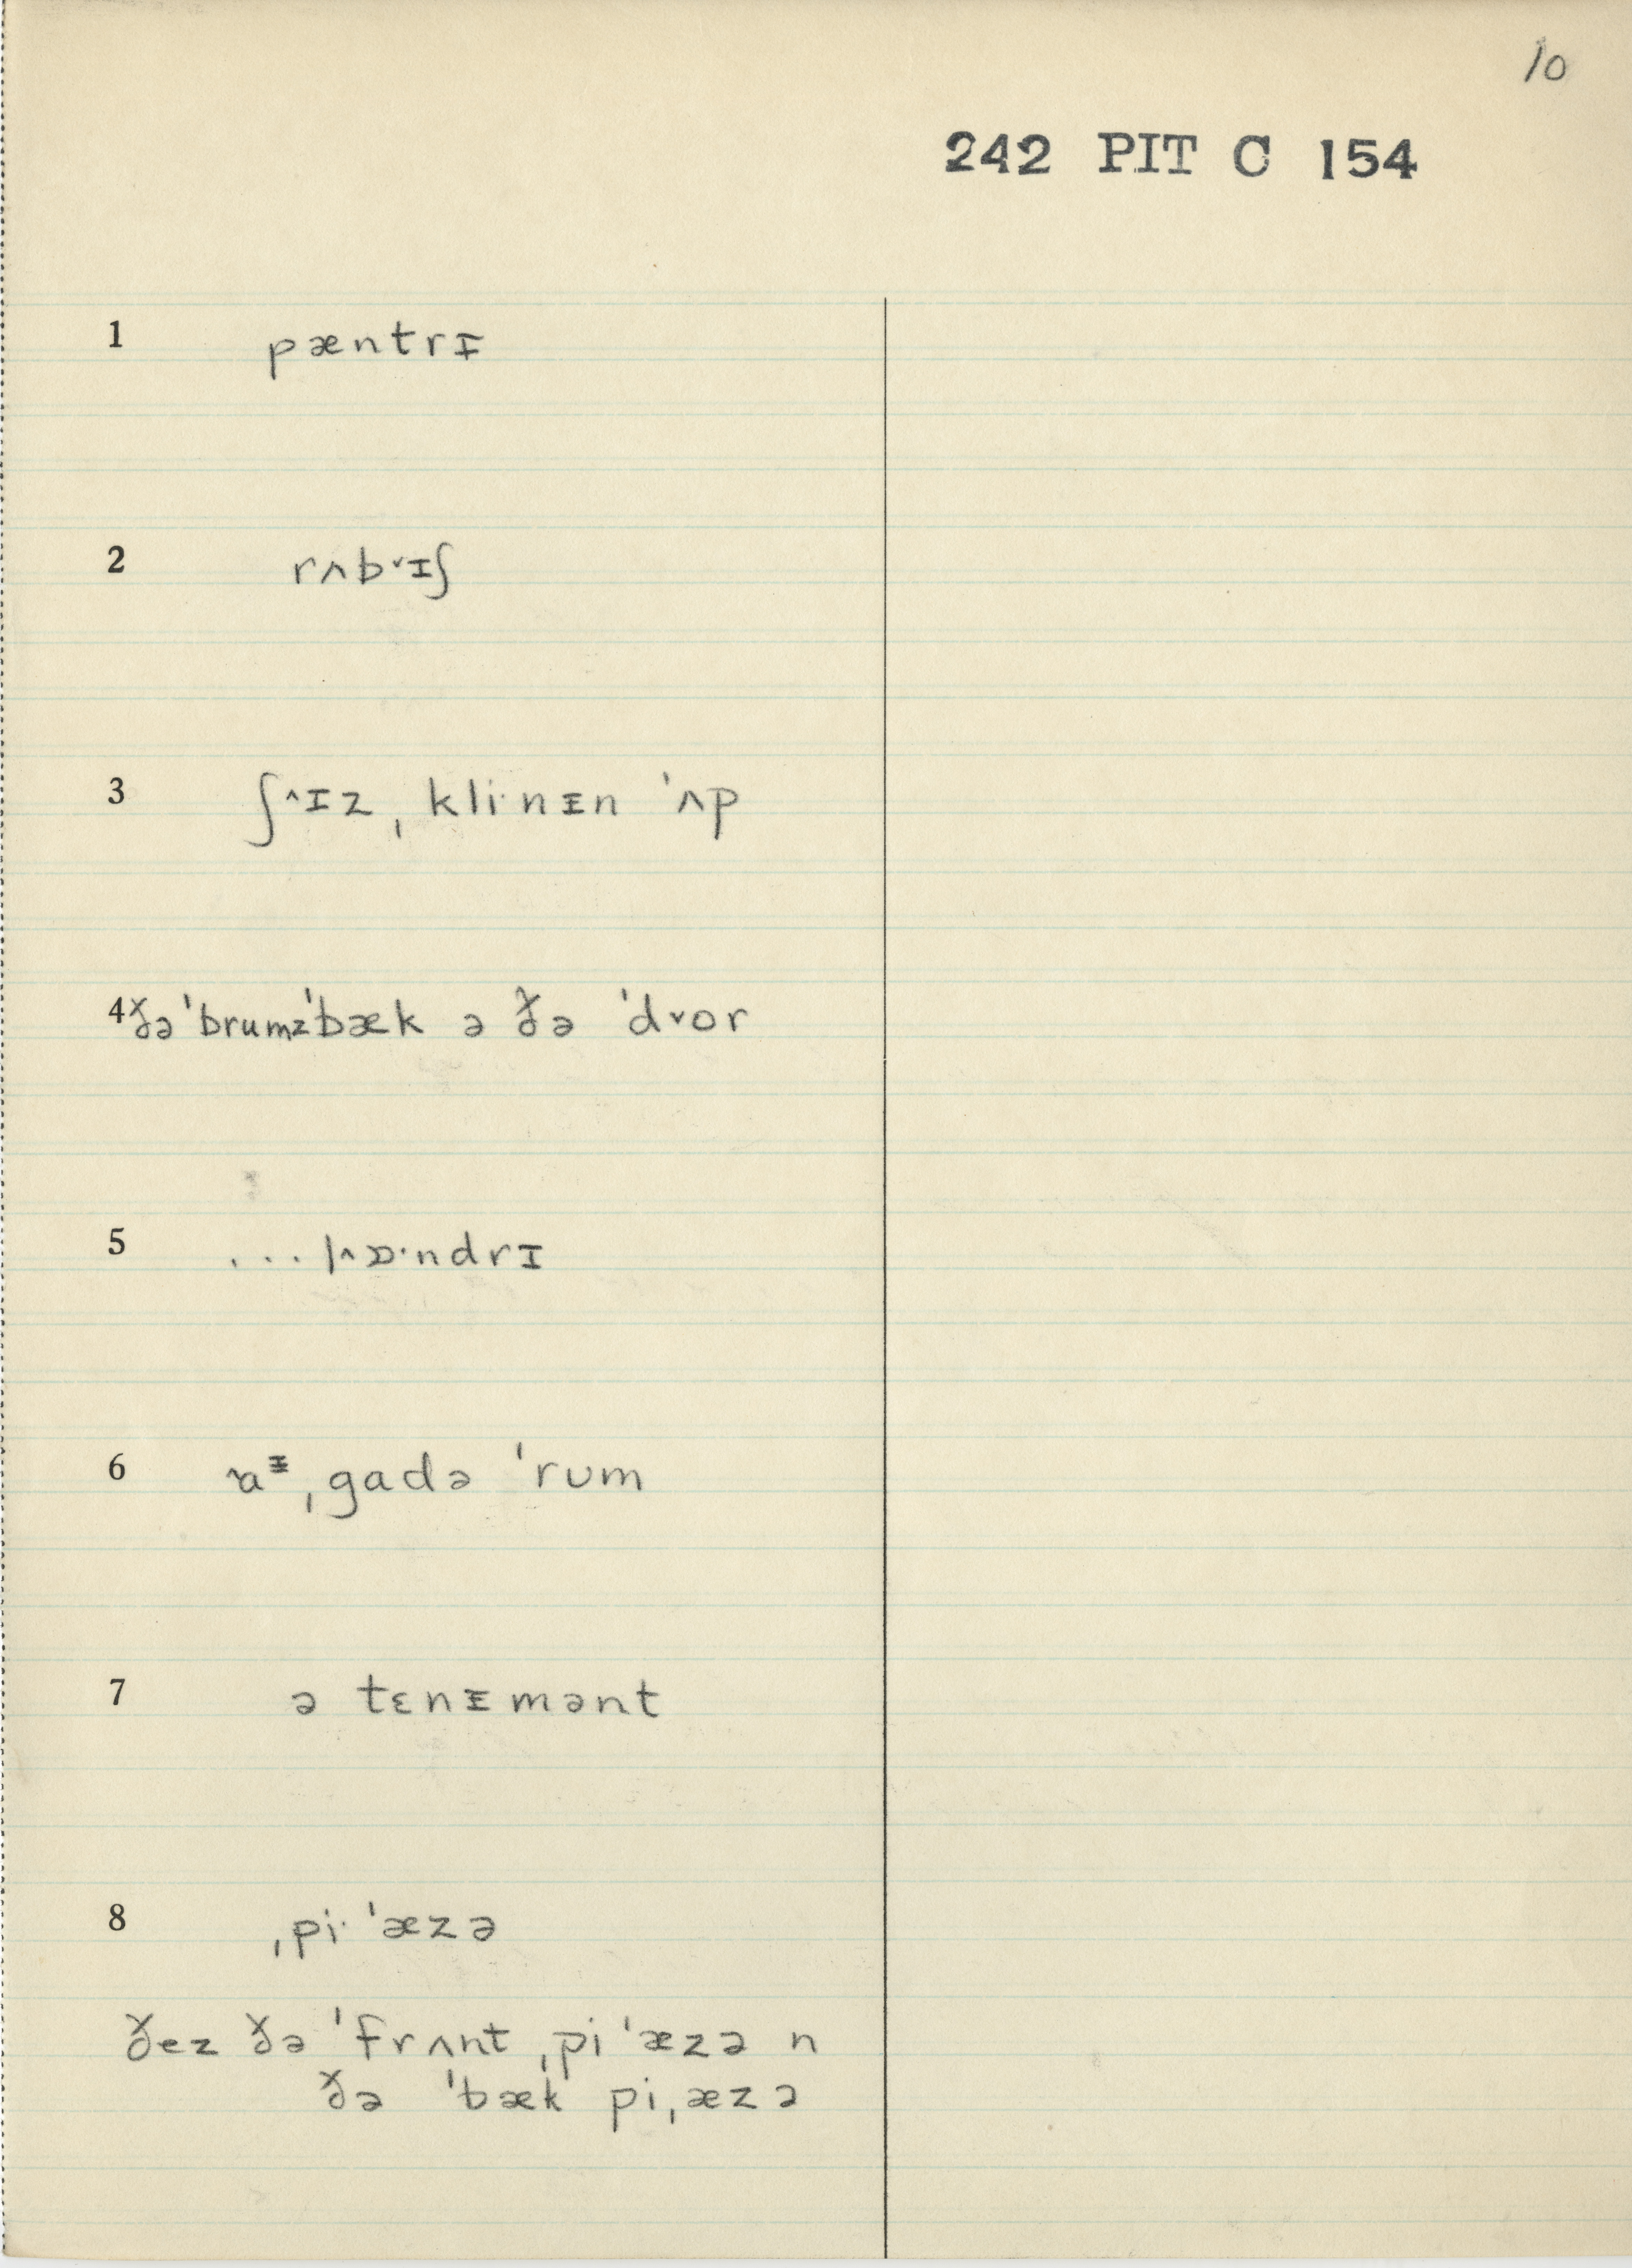 10
242 PIT C 154
1 pæntrɪ
2 rʌb˅ɪʃ
3 ʃ^ɪz ˌkli·nᵻn ˈʌp
4 ðə ˈbrumz ˈbæk ə ðə ˈd˅or
5 ... l^ɒ·ndrɪ
6 ˌgadə ˈrᴜm
7 ə tɛnᵻmənt
8 ˌpi· ˈæzə
ðez ðə ˈfrʌnt ˌpi ˈæzə n
ðə ˈbæk pi ˌæzə